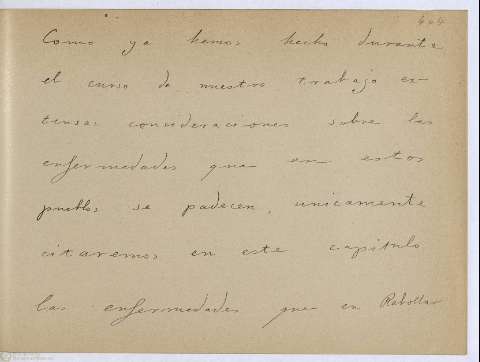 404
Como ya hemos hecho durante
el curso de nuestro trabajo ex-
tensas consideraciones sobre las
enfermedades que en estos
pueblos se padecen, unicamente
citaremos en este capitulo
las enfermedades que en